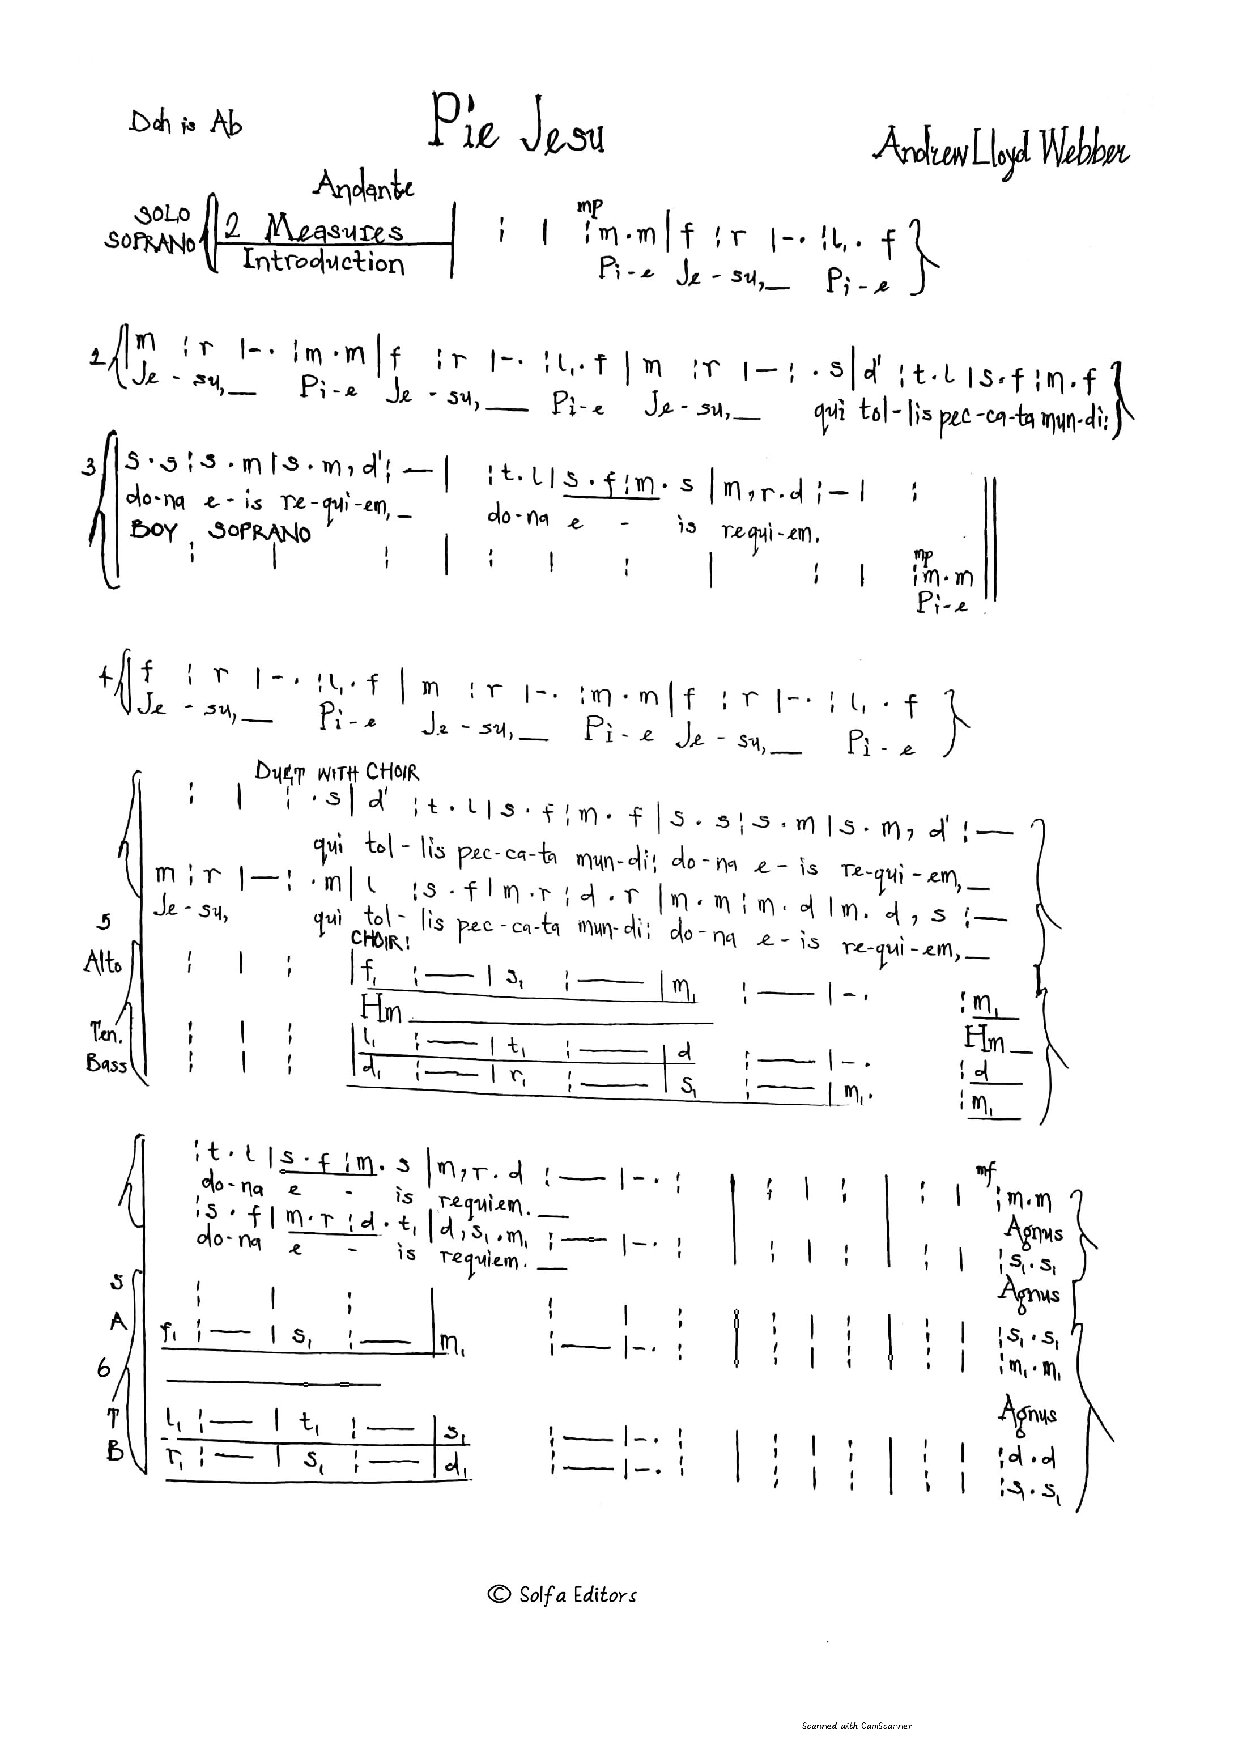 Doh is Ab
Pie Jesu
Andrew Lloyd Webber
Andante
SOLO SOPRANO
2 Measures
Introduction
mp
: | :m.m | f :r |-. :l₁. f
Pi-e Je-su,_ Pi-e
2 m :r |-. :m.m | f :r |-. :l₁.f | m :r |-: .s | d' :t.l |s.f :m.f
Je-su,_ Pi-e Je-su,_ Pi-e Je-su,_ qui tol-lis pec-ca-ta mun-di:
3 s.s :s.m |s.m,d' :— | :t.l |s.f :m.s | m,r.d :-| :
do-na e-is re-qui-em,_ do-na e - is requi-em.
BOY SOPRANO
mp
: | : | : | : | : | :m.m
Pi-e
4 f :r |-. :l₁.f | m :r |-. :m.m | f :r |-. :l₁.f
Je-su,_ Pi-e Je-su,_ Pi-e Je-su,_ Pi-e
DUET WITH CHOIR
: | : .s | d' :t.l |s.f :m.f | s.s :s.m |s.m,d' :—
qui tol-lis pec-ca-ta mun-di: do-na e-is re-qui-em,_
m :r |—: .m | l :s.f |m.r :d.r | m.m :m.d |m.d,s :—
Je-su, qui tol-lis pec-ca-ta mun-di: do-na e-is re-qui-em,_
5
CHOIR:
Alto : | : | f₁ :— | s₁ :— | m₁ :— |-. :m₁
Hm Hm_
Ten. : | : | l₁ :— | t₁ :— | d :— |-. :d
Bass : | : | d₁ :— | r₁ :— | s₁ :— | m₁. :m₁
:t.l |s.f :m.s | m,r.d :— |-. : | : | : | : | mf :m.m
do-na e - is requiem._ Agnus
:s.f |m.r :d.t₁ | d,s₁.m₁ :— |-. : | : | : | : | :s₁.s₁
do-na e - is requiem._ Agnus
S : | : | : | : | : | : | : | :s₁.s₁
A f₁ :— | s₁ :— | m₁ :— |-. : | : | : | : | :m₁.m₁
6
Agnus
T l₁ :— | t₁ :— | s₁ :— |-. : | : | : | : | :d.d
B r₁ :— | s₁ :— | d₁ :— |-. : | : | : | : | :s₁.s₁
© Solfa Editors
Scanned with CamScanner